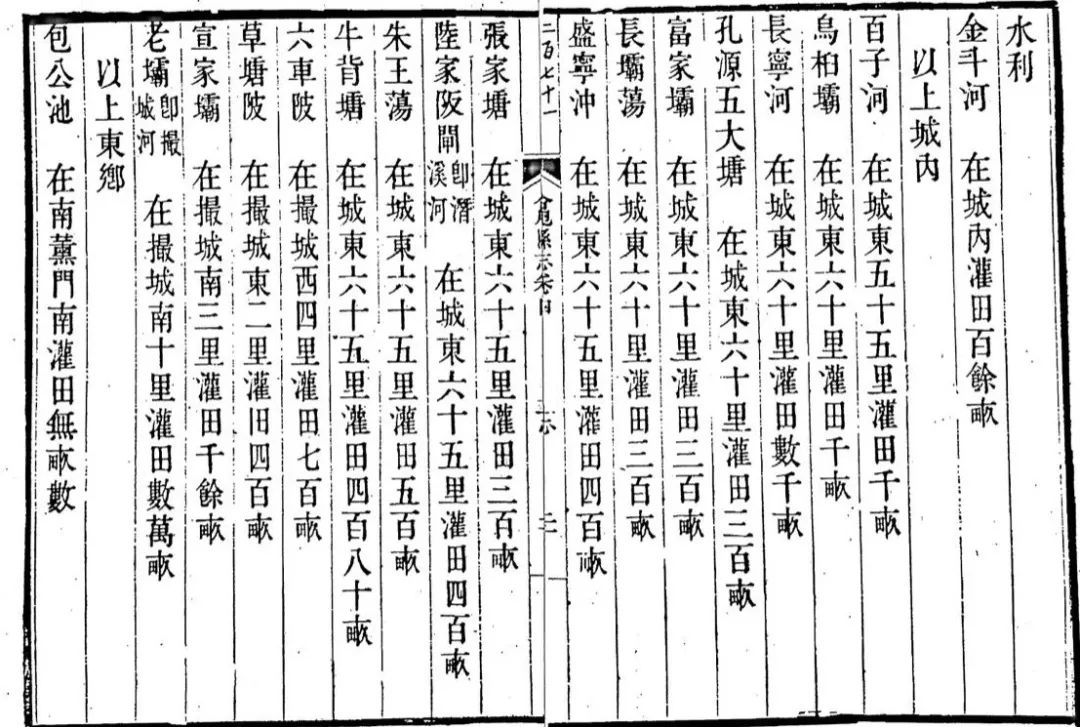 水利
金斗河　在城內灌田百餘畝
以上城內
百子河　在城東五十五里灌田千畝
烏桕壩　在城東六十里灌田千畝
長寧河　在城東六十里灌田數千畝
孔源五大塘　在城東六十里灌田三百畝
富家壩　在城東六十里灌田三百畝
長壩蕩　在城東六十里灌田三百畝
盛寧沖　在城東六十五里灌田四百畝
二百七十一
張家塘　在城東六十五里灌田三百畝
陸家阪閘　即潛溪河　在城東六十五里灌田四百畝
朱王蕩　在城東六十五里灌田五百畝
牛背塘　在城東六十五里灌田四百八十畝
六車陂　在撮城西四里灌田七百畝
草塘陂　在撮城東二里灌旧四百畝
宣家壩　在撮城南三里灌田千餘畝
老壩　即撮城河　在撮城南十里灌田數萬畝
以上東鄉
包公池　在南薰門南灌田無畝數